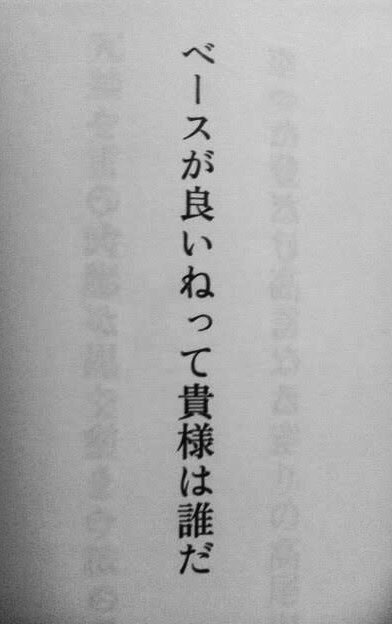 ベースが良いねって貴様は誰だ